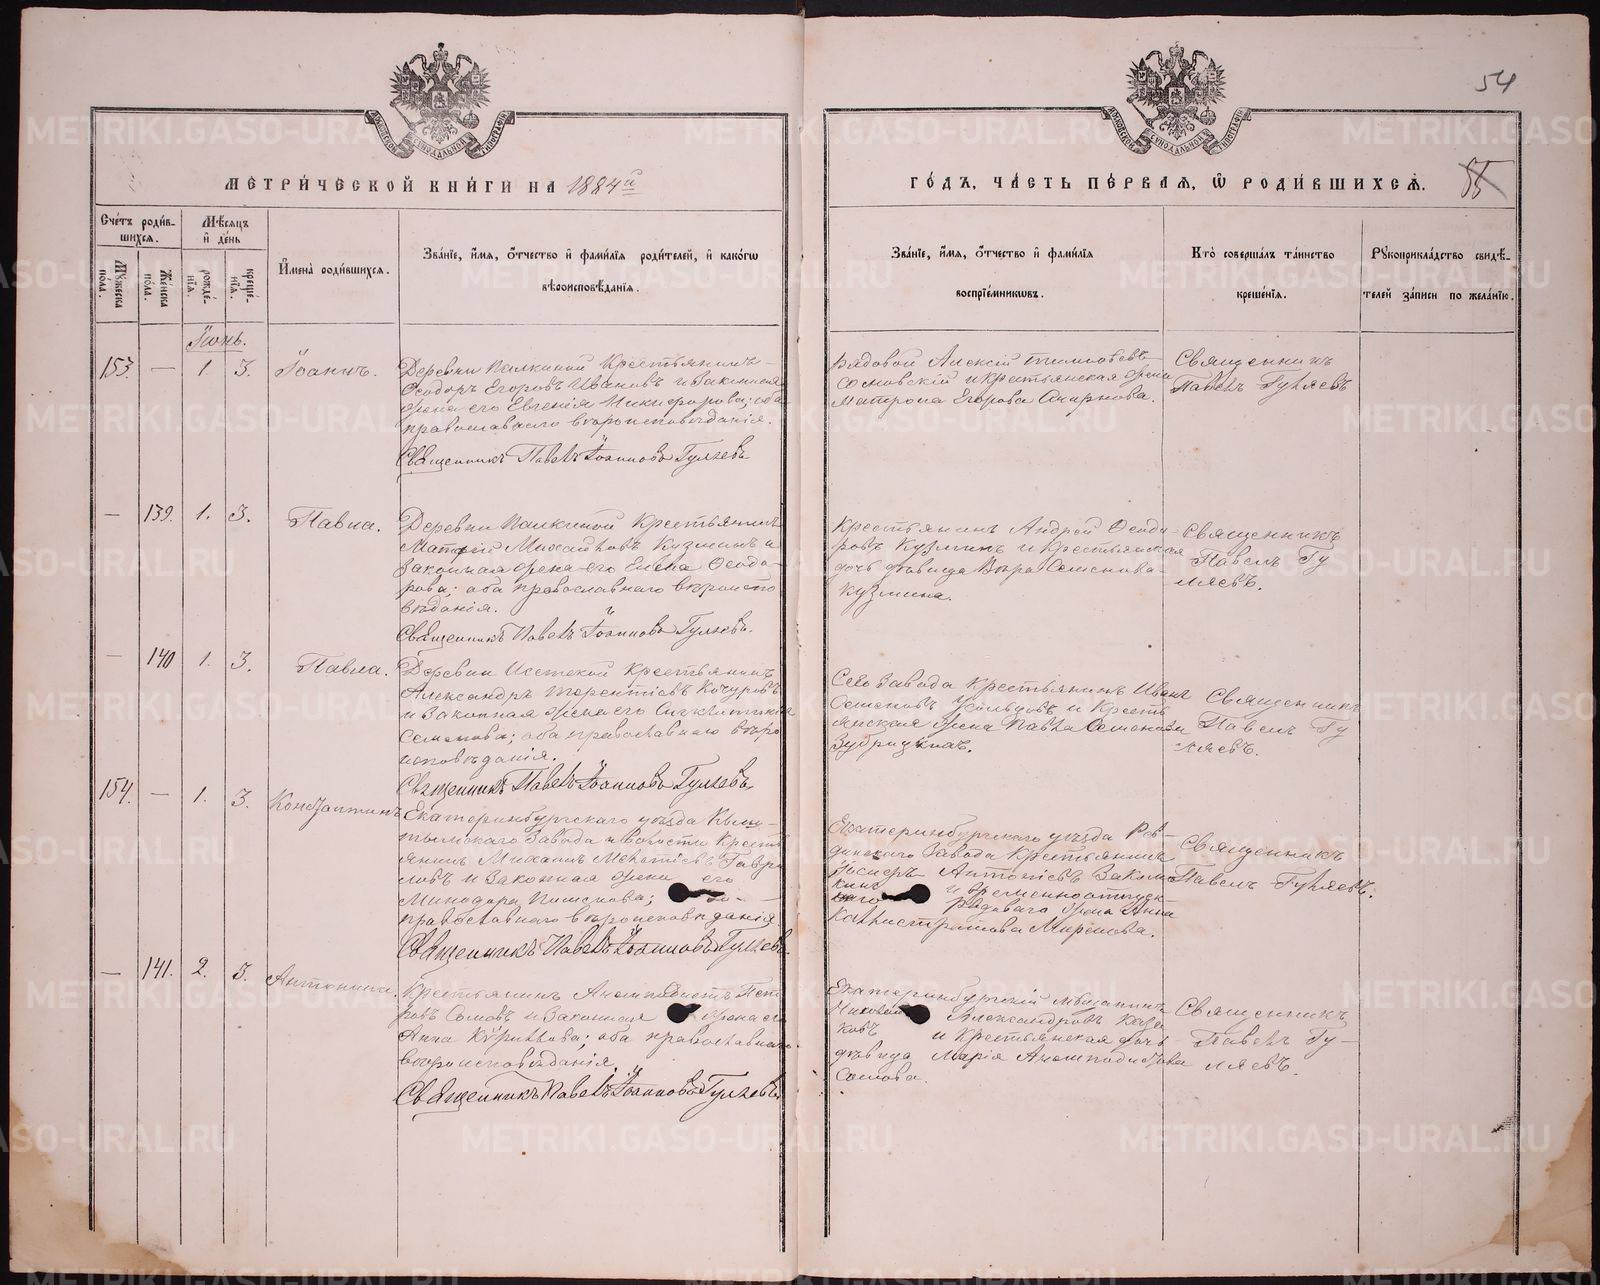 54
МЕТРИЧЕСКОЙ КНИГИ НА 1884й
ГОДЪ, ЧАСТЬ ПЕРВАЯ, Ѡ РОДИВШИХСЯ.
Счетъ родив-
шихся.
Мужеска пола.
Женска пола.
Мѣсяцъ и день
рожде-
нія.
креще-
нія.
Имена родившихся.
Званіе, имя, отчество и фамилія родителей, и какогѡ
вѣроисповѣданія.
Званіе, имя, отчество и фамилія
воспріемникѡвъ.
Кто совершалъ таинство
крещенія.
Рукоприкладство свидѣ-
телей записи по желанію.
Іюнь.
153. — 1 3. Іоаннъ.
Деревни Палкиной Крестьянинъ
Ѳеодоръ Егоровъ Ивановъ и законная
жена его Евгенія Никифорова; оба
православнаго вѣроисповѣданія.
Священникъ Павелъ Іоанновъ Гуляевъ
Рядовой Алексій
и крестьянская жена
Матрона Егорова Смирнова.
Священникъ
Павелъ Гуляевъ
— 139. 1. 3. Павла.
Деревни Палкиной Крестьянинъ
Матѳій Михайловъ Кузминъ и
законная жена его Елена Ѳеодо-
рова; оба православнаго вѣроиспо
вѣданія.
Священникъ Павелъ Іоанновъ Гуляевъ.
Крестьянинъ Андрей Ѳеодо-
ровъ Кузминъ и крестьянская
дочь дѣвица Вѣра Семенова
Кузмина.
Священникъ
Павелъ Гу
ляевъ.
— 140 1. 3. Павла.
Деревни Истокой Крестьянинъ
Александръ Терентіевъ Кочуровъ
и законная жена его
Семенова; оба православнаго вѣро
исповѣданія.
Священникъ Павелъ Іоанновъ Гуляевъ
Сего завода Крестьянинъ Иванъ
Семеновъ и Кресть
янская жена Павла Семенова
Священникъ
Павелъ Гу
ляевъ.
154. — 1. 3. Константинъ
Екатеринбургскаго уѣзда Кыш-
тымскаго завода и волости Кресть
янинъ Михаилъ Гаври
ловъ и законная жена его
Минодора
православнаго вѣроисповѣданія
Священникъ Павелъ Іоанновъ Гуляевъ.
Екатеринбургскаго уѣзда Рев-
динскаго завода Крестьянинъ
Антоніевъ
и временноотпуск
рядоваго жена Анна
Каллистратова Миронова.
Священникъ
Павелъ Гуляевъ.
— 141. 2. 3. Антонина.
Крестьянинъ Анемподистъ Пет
ровъ Сомовъ и законная жена его
Анна Кириллова; оба православнаго
вѣроисповѣданія.
Священникъ Павелъ Іоанновъ Гуляевъ
Екатеринбургскій мѣщанинъ
Николай Александровъ Каза
ковъ и Крестьянская дочь
дѣвица Марія Анемподистова
Сомова.
Священникъ
Павелъ Гу-
ляевъ.
METRIKI.GASO-URAL.RU